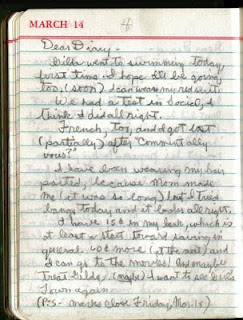 MARCH 14
Dear Diary -
went to swimming today,
first time. I hope I'll be going,
too, (soon) I can wear my red suit.
We had a test in Social, I
think I did all right.
French, too, and I got lost
(partially) after "Comment allez
vous?"
I have been wearing my hair
parted, because Mom made
me (it was so long) but I tried
bangs today and it looks all right.
I have 15¢ in my bank, which is
at least a start toward having in
general. 40¢ more (at the most) and
I can go to the movies! And maybe
treat (maybe) I want to see
Town again.
(P.S. - Marks close Friday, Mar. 15)